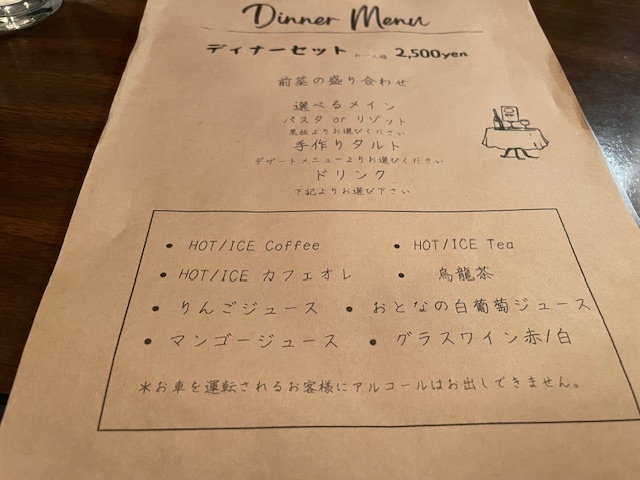 Dinner Menu
ディナーセット お一人様 2,500yen
前菜の盛り合わせ
選べるメイン
パスタ or リゾット
黒板よりお選びください
手作りタルト
デザートメニューよりお選びください
ドリンク
下記よりお選び下さい
• HOT/ICE Coffee • HOT/ICE Tea
• HOT/ICE カフェオレ • 烏龍茶
• りんごジュース • おとなの白葡萄ジュース
• マンゴージュース • グラスワイン赤/白
*お車を運転されるお客様にアルコールはお出しできません。